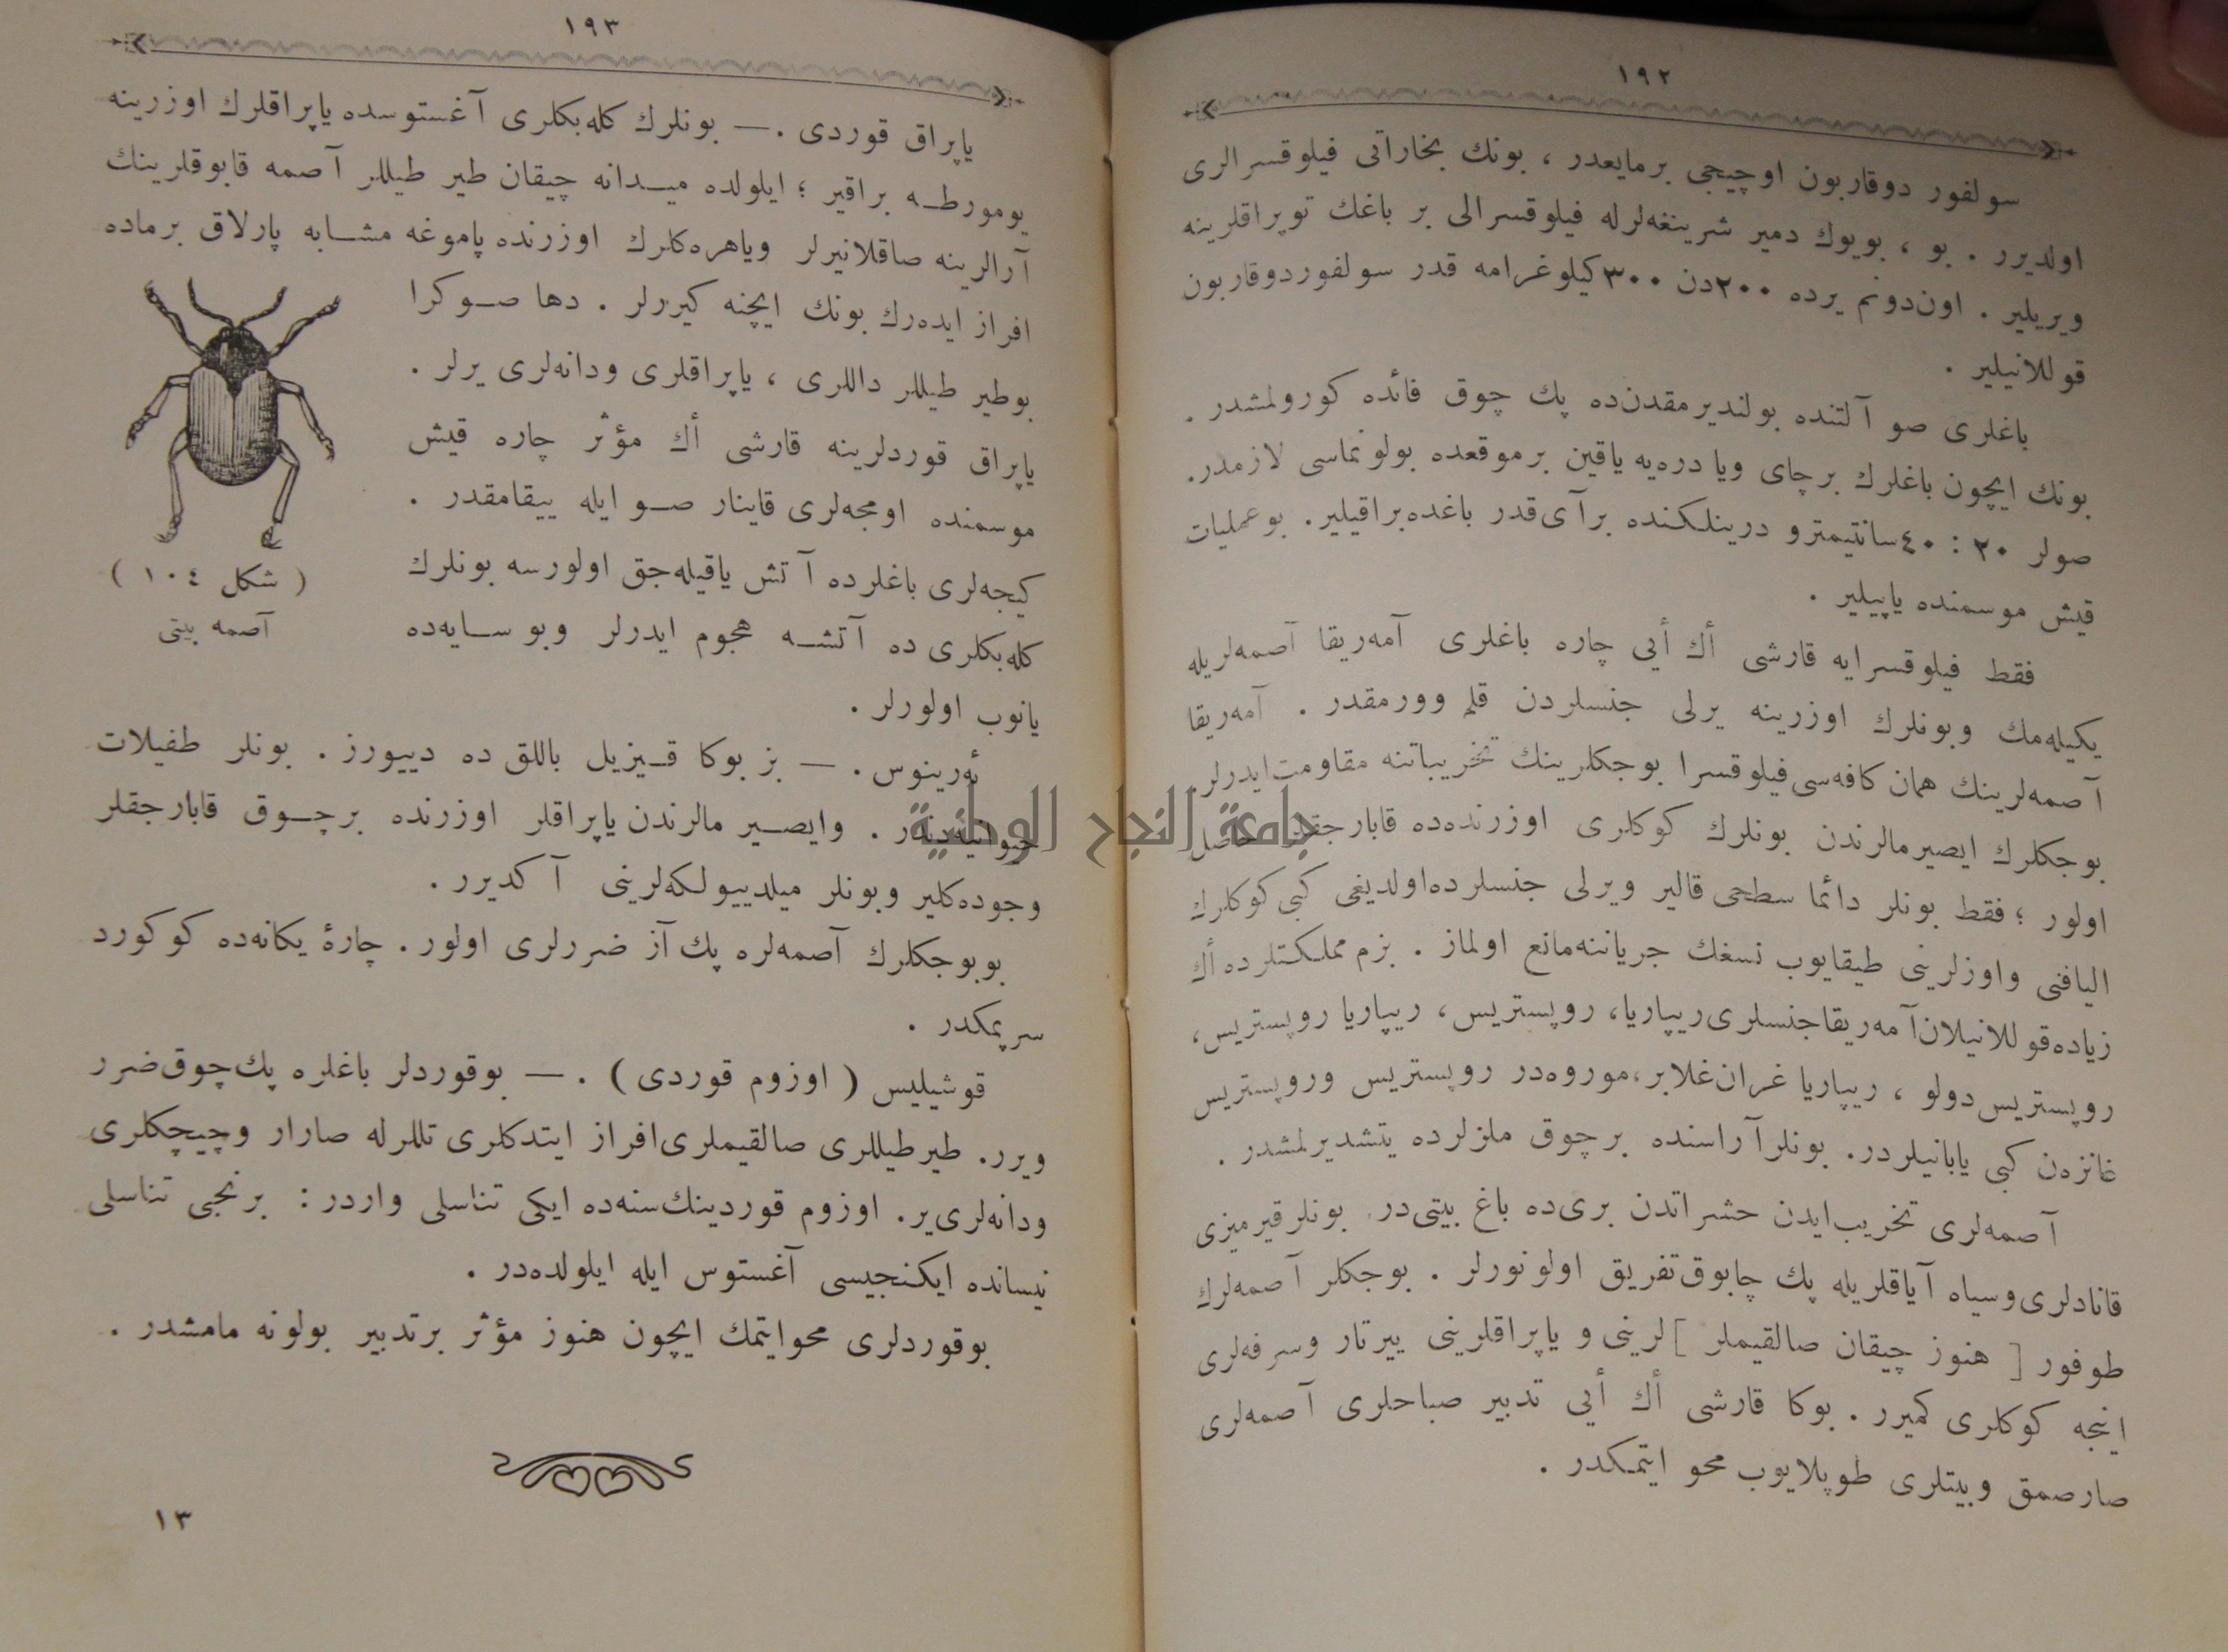 ١٩٢
سولفور دوقاربون اوچیجی برمایعدر ، بونك بخاراتی فیلوقسرالری
اولدیرر . بو ، بویوك دمیر شرینغه‌لرله فیلوقسرالی بر باغك توپراقلرینه
ویریلیر . اون‌دونم یرده ٢٠٠دن ٣٠٠كیلوغرامه قدر سولفوردوقاربون
قوللانیلیر .
باغلری صو آلتنده بولندیرمقدن‌ده پك چوق فائده كورولمشدر .
بونك ایچون باغلرك برچای ویا دره‌یه یاقین برموقعده بولونماسی لازمدر.
صولر ٢٠ : ٤٠سانتیمترو درینلكنده برآی‌قدر باغده‌براقیلیر. بوعملیات
قیش موسمنده یاپیلیر .
فقط فیلوقسرایه قارشی أك أیی چاره باغلری آمه‌ریقا آصمه‌لریله
یكیله‌مك وبونلرك اوزرینه یرلی جنسلردن قلم وورمقدر . آمه‌ریقا
آصمه‌لرینك همان كافه‌سی‌فیلوقسرا بوجكلرینك تخریباتنه مقاومت‌ایدرلر.
بوجكلرك ایصیرمالرندن بونلرك كوكلری اوزرنده‌ده قابارجقلر حاصل
اولور ؛ فقط بونلر دائما سطحی قالیر ویرلی جنسلرده‌اولدیغی كبی كوكلرك
الیافنی واوزلرینی طیقایوب نسغك جریاننه‌مانع اولماز . بزم مملكتلرده أك
زیاده‌قوللانیلان‌آمه‌ریقاجنسلری‌ریپاریا، روپستریس، ریپاریا روپستریس،
روپستریس‌دولو ، ریپاریا غران‌غلابر،موروه‌در روپستریس وروپستریس
غانزه‌ن كبی یابانیلردر. بونلرآراسنده برچوق ملزلرده یتشدیرلمشدر .
آصمه‌لری تخریب‌ایدن حشراتدن بری‌ده باغ بیتی‌در. بونلرقیرمیزی
قانادلری‌وسیاه آیاقلریله پك چابوق‌تفریق اولونورلر . بوجكلر آصمه‌لرك
طوفور [ هنوز چیقان صالقیملر ]لرینی و یاپراقلرینی ییرتار وسرفه‌لری
اینجه كوكلری كمیرر . بوكا قارشی أك أیی تدبیر صباحلری آصمه‌لری
صارصمق وبیتلری طوپلایوب محو ایتمكدر .
١٩٣
یاپراق قوردی . — بونلرك كله‌بكلری آغستوسده یاپراقلرك اوزرینه
یومورطه براقیر ؛ ایلولده میدانه چیقان طیر طیللر آصمه قابوقلرینك
آرالرینه صاقلانیرلر ویاهره‌كلرك اوزرنده پاموغه مشابه پارلاق برماده
افراز ایده‌رك بونك ایچنه كیررلر . دها صوكرا
بوطیر طیللر داللری ، یاپراقلری ودانه‌لری یرلر .
یاپراق قوردلرینه قارشی أك مؤثر چاره قیش
موسمنده اومجه‌لری قاینار صو ایله ییقامقدر .
كیجه‌لری باغلرده آتش یاقیله‌جق اولورسه بونلرك
كله‌بكلری ده آتشه هجوم ایدرلر وبو سایه‌ده
یانوب اولورلر .
( شكل ١٠٤ )
آصمه بیتی
ئه‌رینوس. — بز بوكا قیزیل باللق ده دییورز . بونلر طفیلات
حیوانیه‌دندر . وایصیر مالرندن یاپراقلر اوزرنده برچوق قابارجقلر
وجوده‌كلیر وبونلر میلدییولكه‌لرینی آكدیرر .
بوبوجكلرك آصمه‌لره پك آز ضررلری اولور . چارۀ یكانه‌ده كوكورد
سرپمكدر .
قوشیلیس ( اوزوم قوردی ) . — بوقوردلر باغلره پك‌چوق‌ضرر
ویرر. طیرطیللری صالقیملری‌افراز ایتدكلری تللرله صارار وچیچكلری
ودانه‌لری‌یر. اوزوم قوردینك‌سنه‌ده ایكی تناسلی واردر : برنجی تناسلی
نیسانده ایكنجیسی آغستوس ایله ایلولده‌در .
بوقوردلری محوایتمك ایچون هنوز مؤثر برتدبیر بولونه مامشدر .
١٣
جامعة النجاح الوطنية